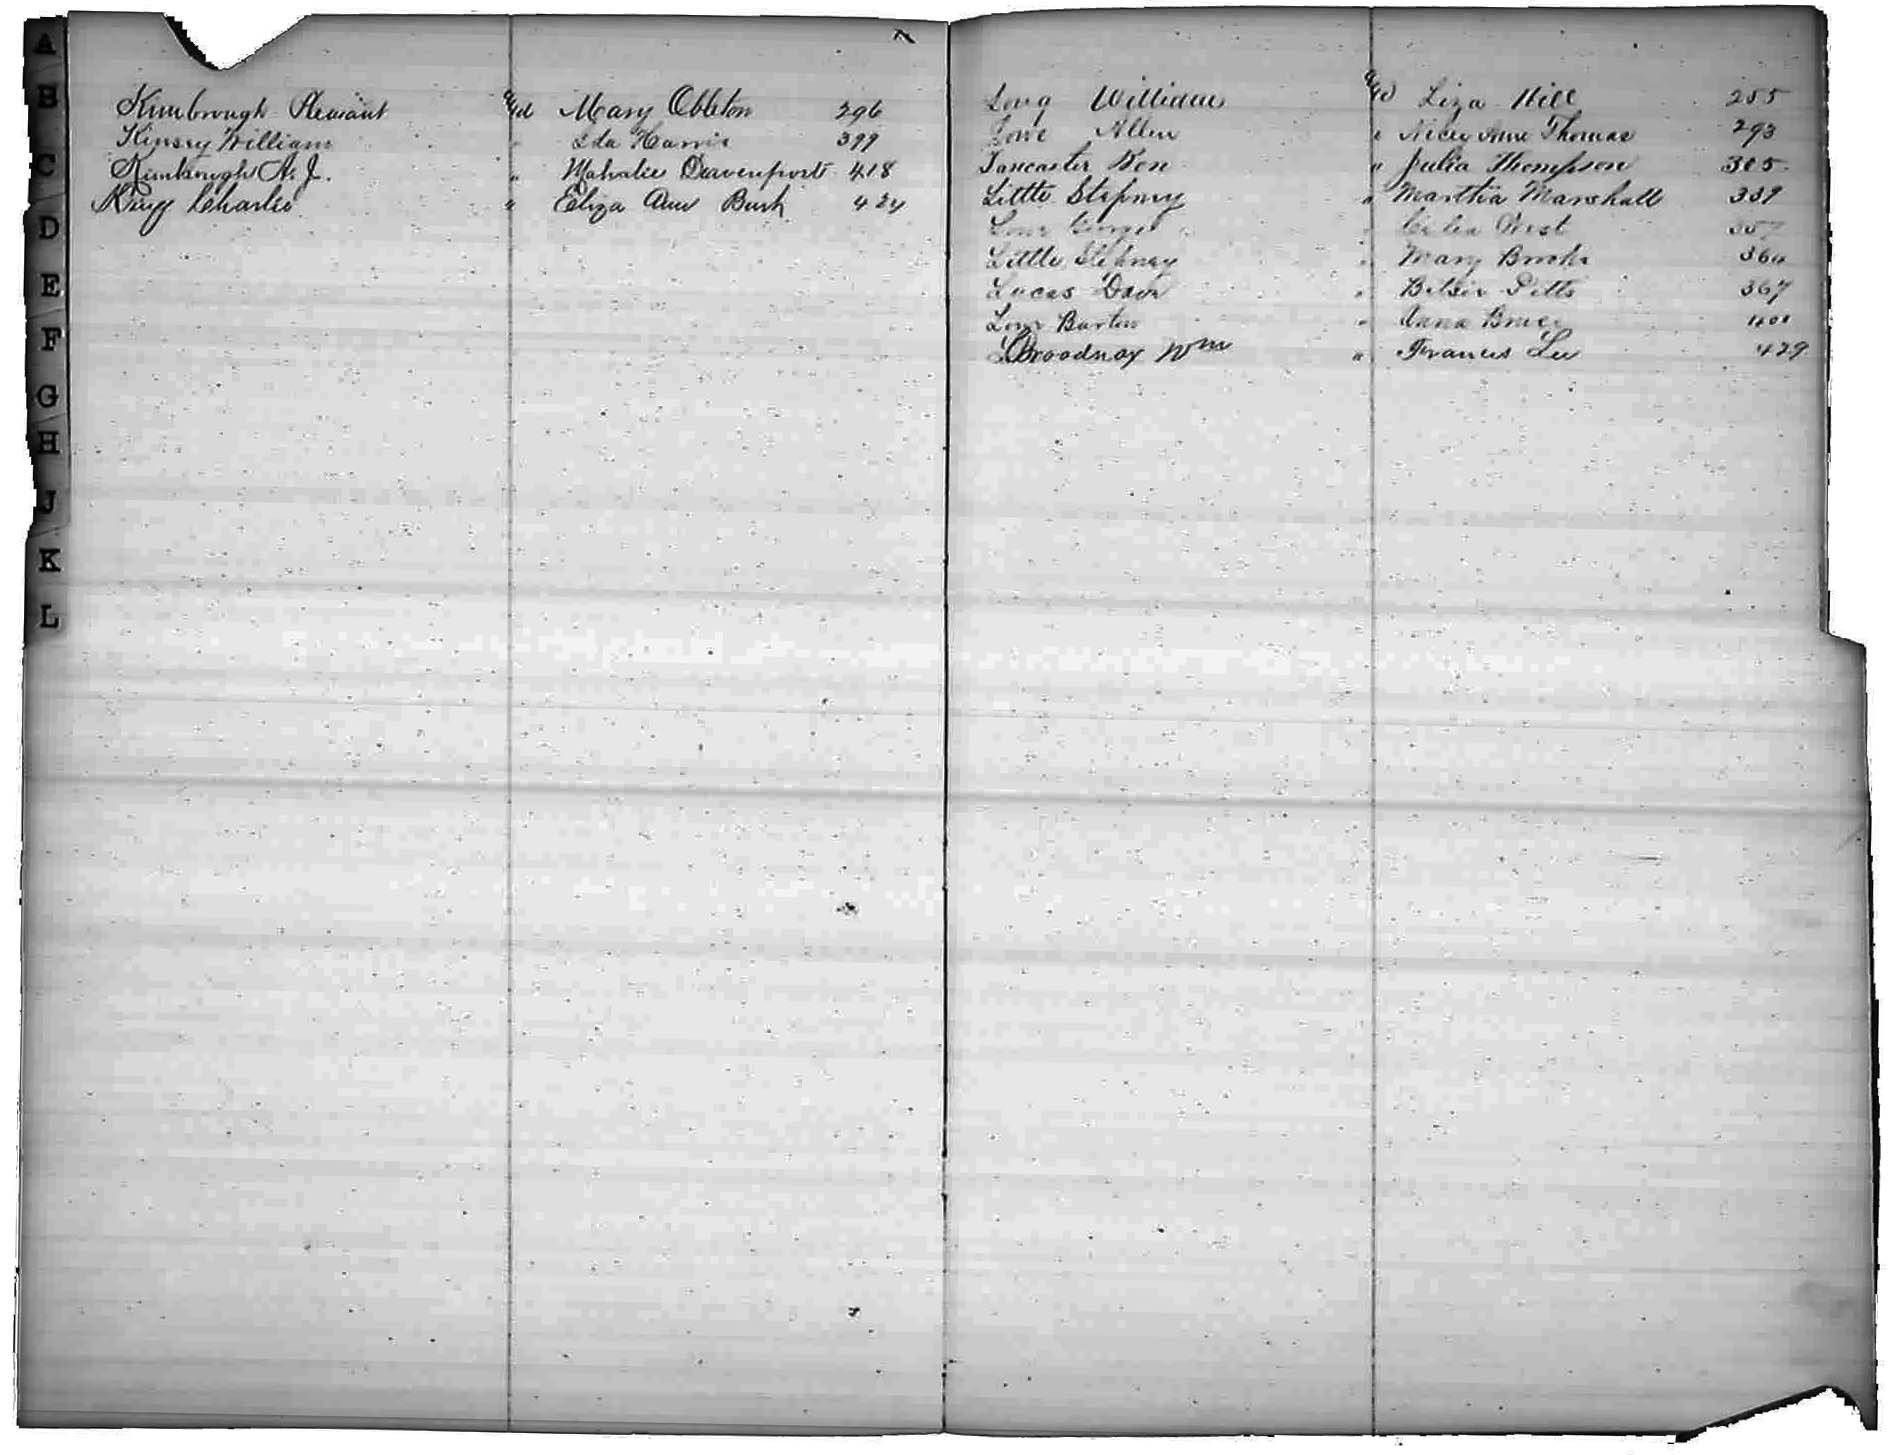 A
B
C
D
E
F
G
H
J
K
L
Kimbrough Pleasant &d Mary Obleton 296
Kinsey William " Ida Harris 399
Kimbrough A. J. " Mahalie Deavenport 418
King Charlie " Eliza Ann Bush 424
Long William &d Liza Hill 255
Lowe Allen " Nicey Anne Thomas 293
Lancaster Ben " Julia Thompson 305
Little Stepney " Martha Marshall 339
Celia West
Little Stepney " Mary Brooks 360
Lucas Dave " Betsie Pitts 367
Barton " Anna 401
Broadnax Wm " Frances Lee 429